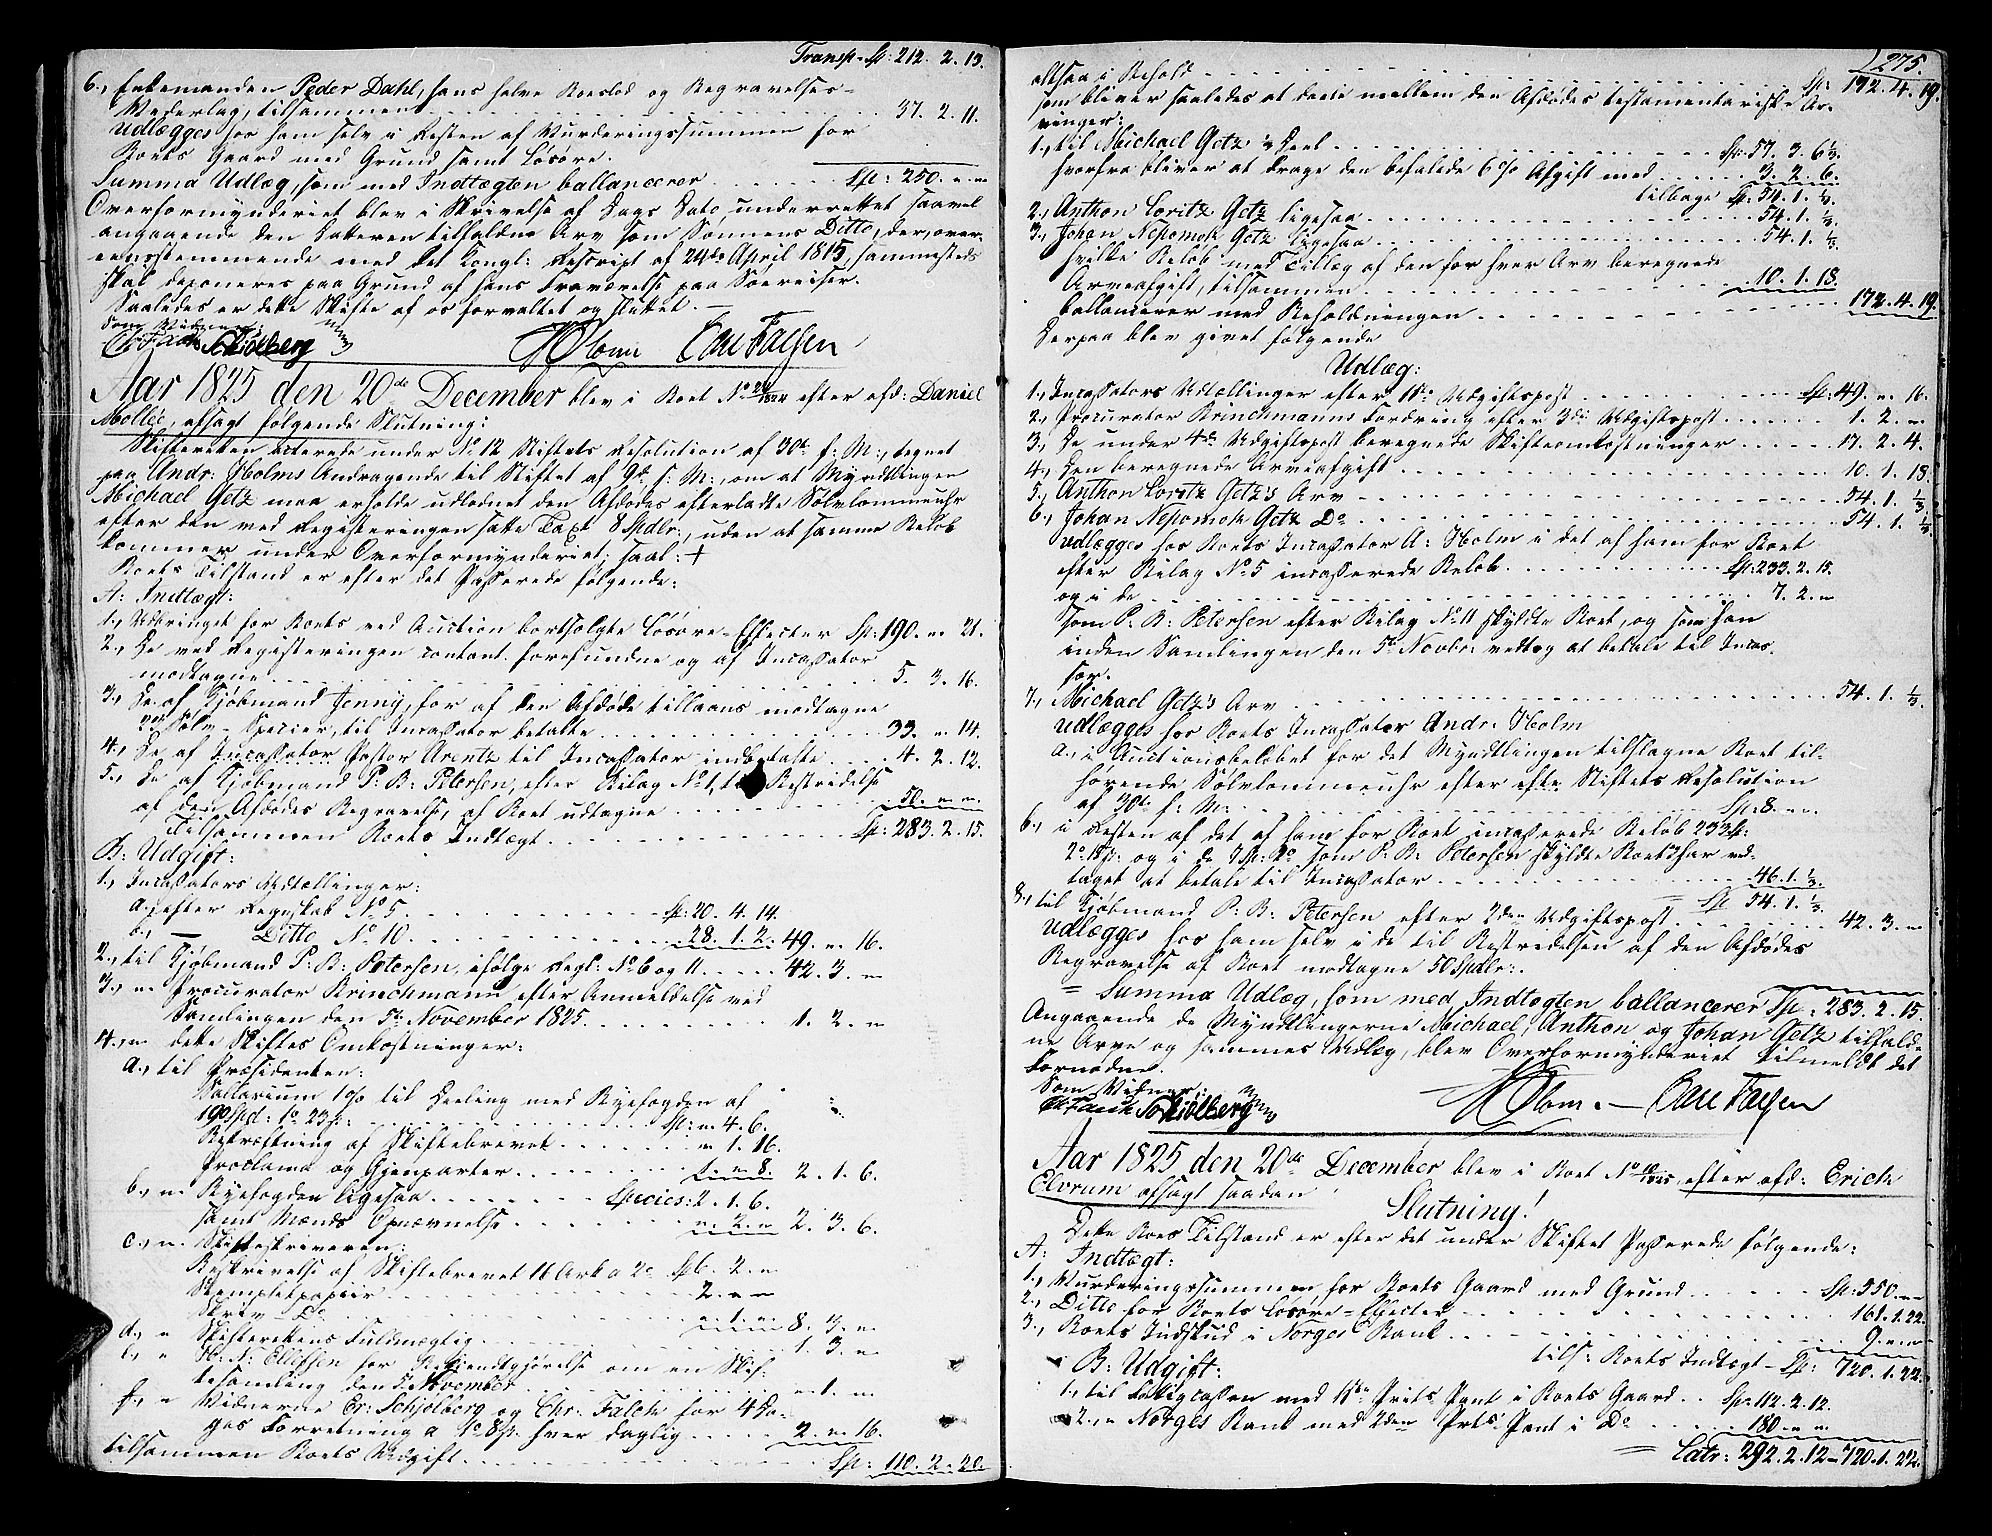 Transp. Sp: 212. 2. 13.
6., Enkemanden Peder Dahl, hans halve Boeslod og Begravelses-
Vederlag, tilsammen 37. 2. 11.
Udlægges hos ham selv i Resten af Vurderingssummen for
Boets Gaard med Grund samt Løsøre.
Summa Udlæg, som med Indtægten ballancerer Sp: 250. " "
Overformynderiet blev i Skrivelse af Dags Dato underrettet saavel
angaaende den Datteren tilfaldne Arv som Sønnens Ditto, der, over-
eensstemmende med det Kongl: Rescript af 24de April 1815, sammesteds
skal deponeres paa Grund af hans Fraværelse paa Søereiser.
Saaledes er dette Skifte af os forvaltet og sluttet.
Som Vidner:
Chr Falch Schiølberg HOlonn Carl Falsen
Aar 1825 den 20de December blev i Boet No 20/1824 efter afd: Daniel
Mollée, afsagt følgende Slutning:
Skifteretten acterede under No 12 Stiftets Resolution af 30te f: M:, tegnet
paa Andr: Holms Andragende til Stiftet af 9de s: M:, om at Myndtlingen
Michael Getz maa erholde udlodnet den Afdødes efterladte Sølvlommeuhr
efter den ved Registeringen satte Taxt 8 Spdlr:, uden at samme Beløb
kommer under Overformynderiet; saal: +
Boets Tilstand er efter det Passerede følgende:
A: Indtægt:
1., Udbringet for Boets ved Auction bortsolgte Løsøre-Effecter Sp: 190. " 21.
2., De ved Registeringen contant forefundne og af Incassator
modtagne 5. 3. 16.
3., De af Kjøbmand Jenny, for af den Afdøde tillaans modtagne
Sølv-Specier, til Incassator betalte 33. " 14.
4., De af Incassator Pastor Arentz til Incassator indbetalte 4. 2. 12.
5., De af Kjøbmand P: B: Petersen, efter Bilag No 1, til Bestridelse
af den Afdødes Begravelse, af Boet udtagne 50. " "
Tilsammen Boets Indtægt Sp: 283. 2. 15.
B: Udgift:
1., Incassators Udtællinger:
a., efter Regnskab No 5 Sp: 20. 4. 14.
b., — Ditto No 10 28. 1. 2. 49. " 16.
2., til Kjøbmand P: B: Petersen, ifølge Regl: No 6 og 11 42. 3. "
3., " Procurator Brinchmann efter Anmeldelse ved
Samlingen den 5te November 1825 1. 2. "
4., " dette Skiftes Omkostninger:
a., til Præsidenten:
Sallarium 1% til Deeling med Byefogden af
190 Spd: 1o 23s: Sp: " 4. 6.
Bekræftning af Skiftebrevet " 1. 16.
Proclama og Gjenparter 1. " 8. 2. 1. 6.
b., " Byefogden ligesaa Species: 2. 1. 6.
samt Mænds Opnævnelse " 2. " 2. 3. 6.
c., " Skifteskriveren:
Beskrivelse af Skiftebrevet 16 Ark a 2o Sp 6. 2. "
Stempletpapiir 2. " "
Skriv-Do " 1. " 8. 3. "
d., " Skifterettens Fuldmægtig 1. 3. "
e., " H: N: Ellefsen for Bekiendtgjørelse om en Skif-
tesamling den 5 November " 1. "
f., " Vidnerne Er: Schjølberg og Chr: Falch for 4 Da-
ges Forretning a 1o 8s: hver daglig 2. " 16.
tilsammen Boets Udgift Sp: 110. 2. 20.
275.
altsaa i Behold Sp: 172. 4. 19.
som bliver saaledes at deele mellem den Afdødes testamentariske Ar-
vinger:
1., til Michael Getz's Deel Sp: 57. 3. 6⅓.
hvorfra bliver at drage den befalede 6% Afgift med 3. 2. 6.
tilbage Sp: 54. 1. ⅓.
2., Anthon Loritz Getz ligesaa 54. 1. ⅓.
3., Johan Nepomok Getz ligesaa 54. 1. ⅓.
hvilke Beløb med Tillæg af den for hver Arv beregnede
Arveafgift, tilsammen 10. 1. 18.
ballancerer med Beholdningen 172. 4. 19.
Derpaa blev givet følgende
Udlæg:
1., Incassators Udtællinger efter 1ste Udgiftspost Sp: 49. " 16.
2., Procurator Brinchmanns Fordring efter 3die Udgiftspost 1. 2. "
3., De under 4de Udgiftspost beregnede Skifteomkostninger 17. 2. 4.
4., Den beregnede Arveafgift 10. 1. 18.
5., Anthon Loritz Getz's Arv 54. 1. ⅓.
6., Johan Nepomok Getz Do 54. 1. ⅓.
udlægges hos Boets Incassator A: Holm i det af ham for Boet
efter Bilag No 5 incasserede Beløb Sp: 233. 2. 15.
og i de 7. 2. "
som P: B: Petersen efter Bilag No 11 skyldte Boet, og som han
inden Samlingen den 5te Novbr: vedtog at betale til Incas-
sor.
7., Michael Getz's Arv 54. 1. ⅓.
udlægges hos Boets Incassator Andr: Holm
a., i Auctionsbeløbet for det Myndtlingen tilslagne Boet til-
hørende Sølvlommeuhr efter Stiftets Resolution
af 30te f: M: Sp: 8. " "
b., i Resten af det af ham for Boet incasserede Beløb 233 Sp:
2o 15s: og i de 7 Sp: 2o som P: B: Petersen skyldte Boet & har ved-
taget at betale til Incassator 46. 1. ⅓.
= Sp 54. 1. ⅓.
8., til Kjøbmand P: B: Petersen efter 2den Udgiftspost 42. 3. "
Udlægges hos ham selv i de til Bestridelsen af den Afdødes
Begravelse af Boet modtagne 50 Spdlr:.
= Summa Udlæg, som med Indtægten ballancerer Sp: 283. 2. 15.
Angaaende de Myndtlingerne Michael, Anthon og Johan Getz tilfald-
ne Arve og sammes Udlæg, blev Overformynderiet tilmeldt det
Fornødne.
Som Vidner:
Chr Falch Schiølberg HOlonn. — Carl Falsen
Aar 1825 den 20de December blev i Boet No 10/1825 efter afd: Erich
Elvrum afsagt saadan
Slutning!
Dette Boes Tilstand er efter det under Skiftet Passerede følgende:
A: Indtægt:
1., Vurderingssummen for Boets Gaard med Grund Sp: 550. " "
2., Ditto for Boets Løsøre-Effecter 161. 1. 22.
3., Boets Indskud i Norges Bank 9. " "
tils: Boets Indtægt — Sp: 720. 1. 22.
B: Udgift:
1., til Fattigcassen med 1ste Prits Pant i Boets Gaard Sp: 112. 2. 12.
2., " Norges Bank med 2den Prts: Pant i Do 180 " "
= Latr: 292. 2. 12 — 720. 1. 22.